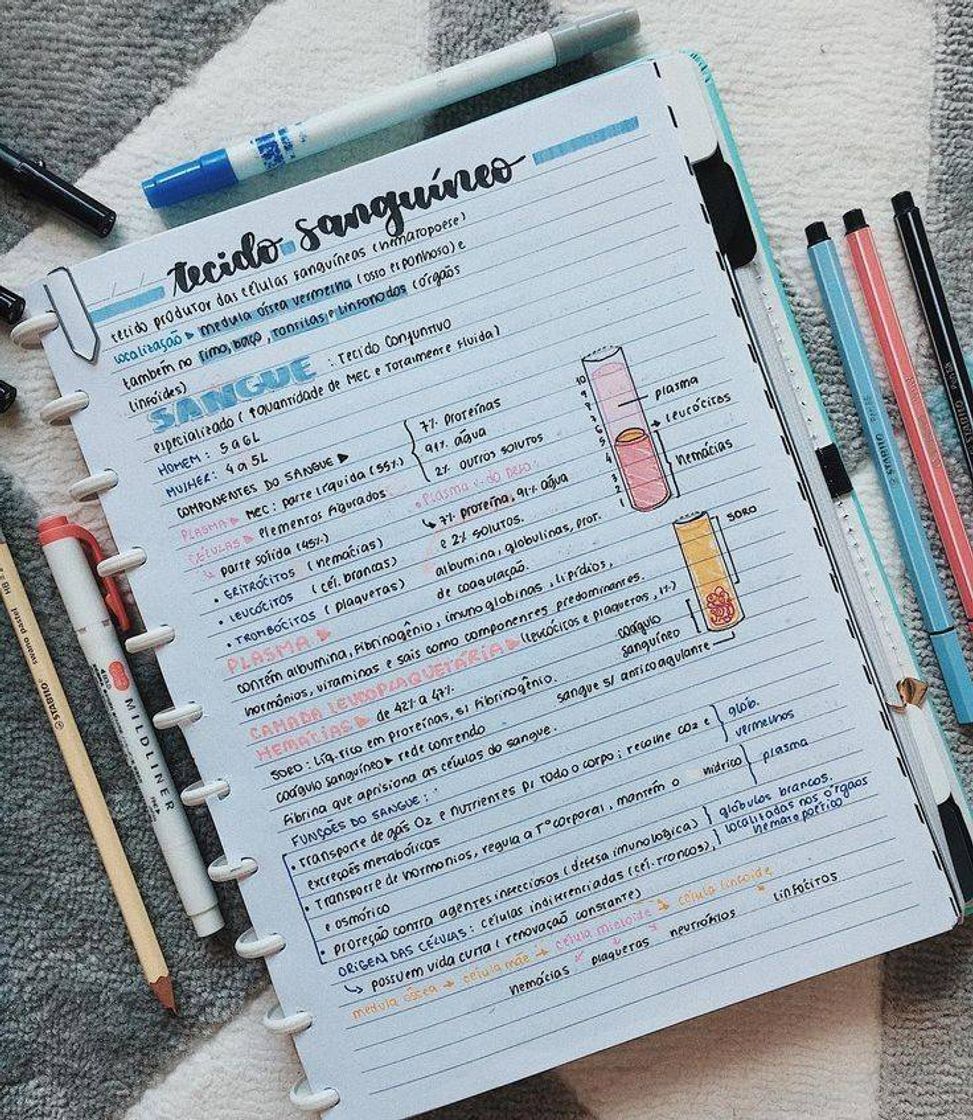 tecido sanguíneo
tecido produtor das células sanguíneas (hematopoese)
localização ▸ medula óssea vermelha (osso esponhoso) e
também no timo, baço, tonsitas e linfonodos (órgãos
linfoides)
SANGUE : Tecido Conjuntivo
especializado (↑quantidade de MEC e totalmente fluida)
HOMEM : 5 a 6L
MULHER: 4 a 5L
COMPONENTES DO SANGUE ▸
7% proteínas
91% água
2% outros solutos
PLASMA ▸ MEC: parte líquida (55%)
CÉLULAS ▸ elementos figurados
↳ parte sólida (45%)
• ERITRÓCITOS (hemácias)
• LEUCÓCITOS (cél. brancas)
• TROMBÓCITOS (plaquetas)
• Plasma do
↳ 7% proteína, 91% água
e 2% solutos.
albumina, globulinas, prot.
de coagulação.
10
9
8
7
6
5
4
3
2
1
plasma
leucócitos
hemácias
SORO
coágulo
sanguíneo
sangue s/ anticoagulante
PLASMA ▸
contém albumina, fibrinogênio, imunoglobinas, lipídios,
hormônios, vitaminas e sais como componentes predominantes.
CAMADA LEUCOPLAQUETÁRIA ▸ (leucócitos e plaquetas, 1%)
HEMÁCIAS ▸ de 42% a 47%
SORO : Líq. rico em proteínas, s/ fibrinogênio.
coágulo sanguíneo ▸ rede contendo
fibrina que aprisiona as células do sangue.
FUNÇÕES DO SANGUE :
• Transporte de gás O2 e nutrientes p/ todo o corpo; recolhe CO2 e
excreções metabólicas
glób.
vermelhos
• Transporte de hormonios, regula a T° corporal, mantém o hídrico
e osmótico
plasma
• proteção contra agentes infecciosos (defesa imunológica)
glóbulos brancos.
ORIGEN DAS CÉLULAS : células indiferenciadas (cél. troncos),
localizadas nos órgãos
hematopoético
↳ possuem vida curta (renovação constante)
medula óssea → célula mãe → célula mieloide → célula linfoide
hemácias plaquetas neutrófilos linfócitos
MILDLINER
STABILO
swano pastel
HB
STABILO